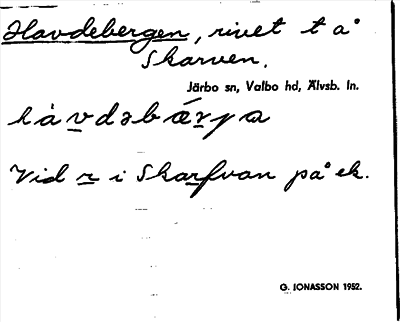 Havdebergen, rivet t å
Skarven.
Järbo sn, Valbo hd, Älvsb. ln.
håvdəbærja
Vid r i Skarfvan på ek.
G. JONASSON 1952.